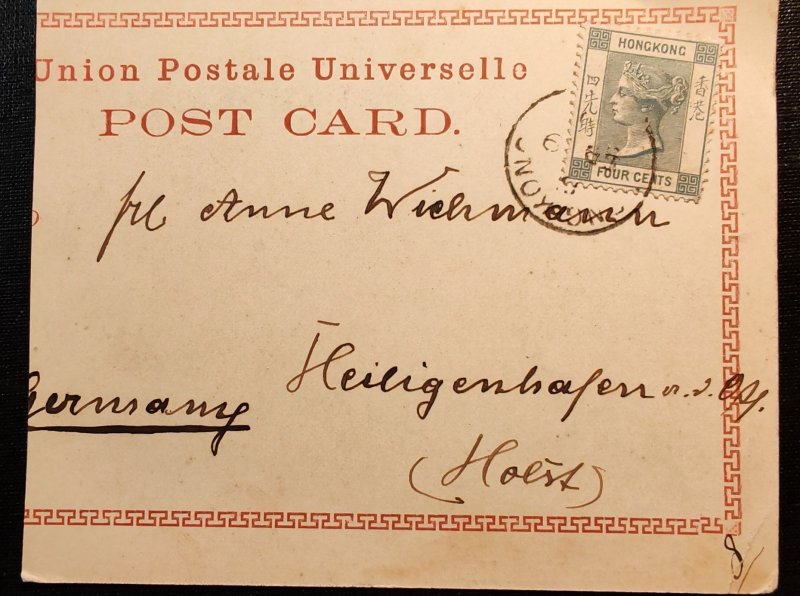 Union Postale Universelle
POST CARD.
HONGKONG
香港
四先時
FOUR CENTS
frl Anne Wichmann
Heiligenhafen a. d. Ots.
Germany
(Holst)
8/